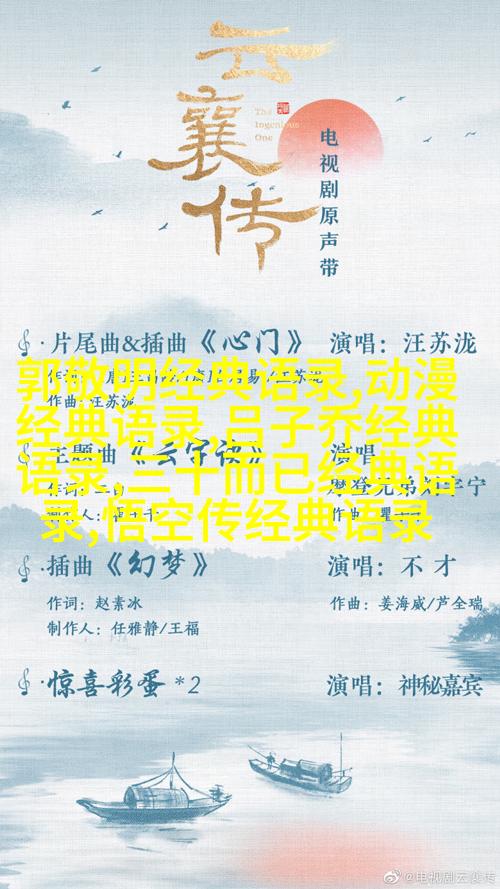 云襄传
The
Ingenious
One
电视剧原声带
片尾曲&插曲《心门》 演唱：汪苏泷
作曲：汪苏泷
郭敬明经典语录,动漫
经典语录,吕子乔经典
语录,三十而已经典语
录,悟空传经典语录
主题曲
演唱
插曲《幻梦》 演唱：不才
作词：赵素冰 作曲：姜海威/芦全瑞
制作人：任雅静/王福
惊喜彩蛋 *2 演唱：神秘嘉宾
@电视剧云襄传